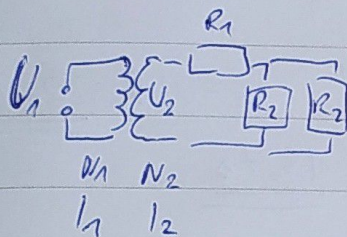 R1
U1 U2 R2 R2
N1 N2
I1 I2